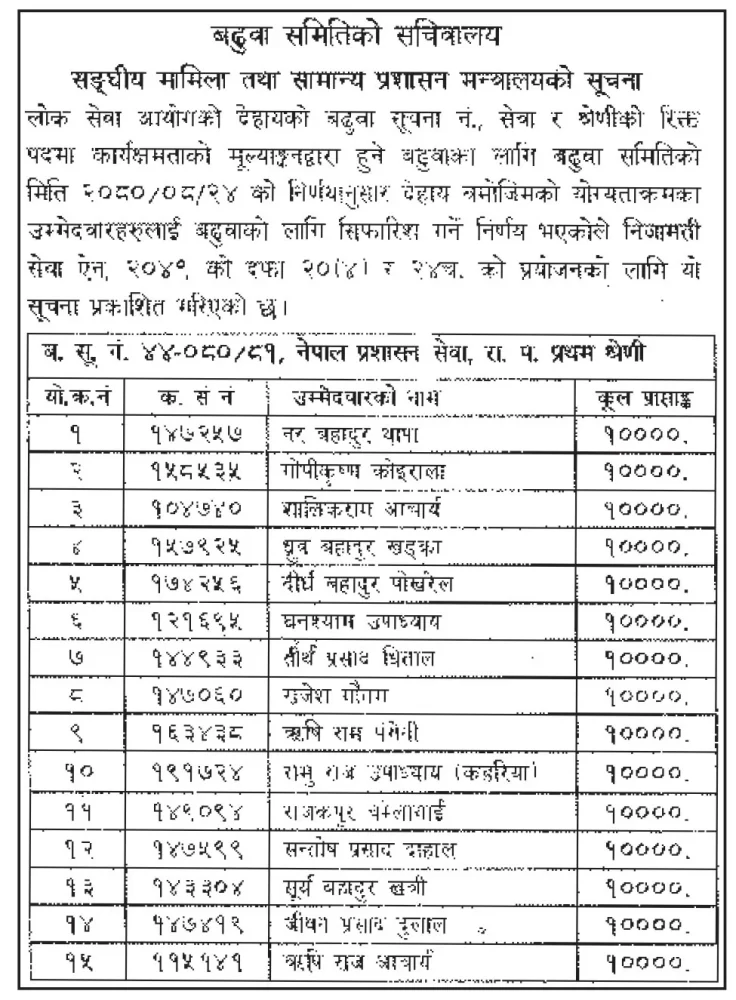 बढुवा समितिको सचिवालय
सङ्घीय मामिला तथा सामान्य प्रशासन मन्त्रालयको सूचना
लोक सेवा आयोगको देहायको बढुवा सूचना नं., सेवा र श्रेणीको रिक्त
पदमा कार्यक्षमताको मूल्याङ्कनद्वारा हुने बढुवाका लागि बढुवा समितिको
मिति २०८०/०८/२४ को निर्णयानुसार देहाय बमोजिमको योग्यताक्रमका
उम्मेदवारहरुलाई बढुवाको लागि सिफारिश गर्ने निर्णय भएकोले निजामती
सेवा ऐन, २०४९ को दफा २०(४) र २४च. को प्रयोजनको लागि यो
सूचना प्रकाशित गरिएको छ।
ब. सू. नं. ४४-०८०/८१, नेपाल प्रशासन सेवा, रा. प. प्रथम श्रेणी
यो.क्र.नं क. सं नं उम्मेदवारको नाम कूल प्राप्ताङ्क
१ १४७२५७ नर बहादुर थापा १००००.
२ १५८५३५ गोपीकृष्ण कोइराला १००००.
३ १०४७४० शालिकराम आचार्य १००००.
४ १५७९२५ ध्रुव बहादुर खड्का १००००.
५ १७४२५६ दीर्घ बहादुर पोखरेल १००००.
६ १२१६९५ घनश्याम उपाध्याय १००००.
७ १४४९३३ तीर्थ प्रसाद धिताल १००००.
८ १४७०६० राजेश गौतम १००००.
९ १६३४३८ ऋषि राम पंगेनी १००००.
१० १९१७२४ रामु राज उपाध्याय (कडरिया) १००००.
११ १४९०९४ राजकपुर बम्लागाई १००००.
१२ १४७५९९ सन्तोष प्रसाद दाहाल १००००.
१३ १४३३०४ सूर्य बहादुर खत्री १००००.
१४ १४७४१९ जीवन प्रसाद दुलाल १००००.
१५ ११५१४१ ऋषि राज आचार्य १००००.